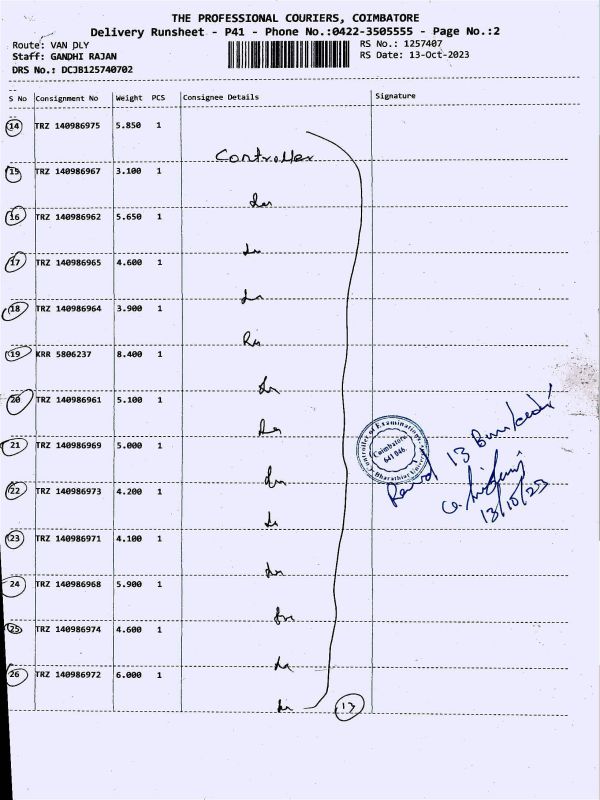 THE PROFESSIONAL COURIERS, COIMBATORE
Delivery Runsheet - P41 - Phone No.:0422-3505555 - Page No.:2
Route: VAN DLY RS No.: 1257407
Staff: GANDHI RAJAN RS Date: 13-Oct-2023
DRS No.: DCJB125740702
S No Consignment No Weight PCS Consignee Details Signature
14 TRZ 140986975 5.850 1
Controller
15 TRZ 140986967 3.100 1
16 TRZ 140986962 5.650 1
17 TRZ 140986965 4.600 1
18 TRZ 140986964 3.900 1
19 KRR 5806237 8.400 1
20 TRZ 140986961 5.100 1
21 TRZ 140986969 5.000 1
Controller of Examinations
Coimbatore
641 046
Bharathiar University
13
22 TRZ 140986973 4.200 1
13/10/23
23 TRZ 140986971 4.100 1
24 TRZ 140986968 5.900 1
25 TRZ 140986974 4.600 1
26 TRZ 140986972 6.000 1
13